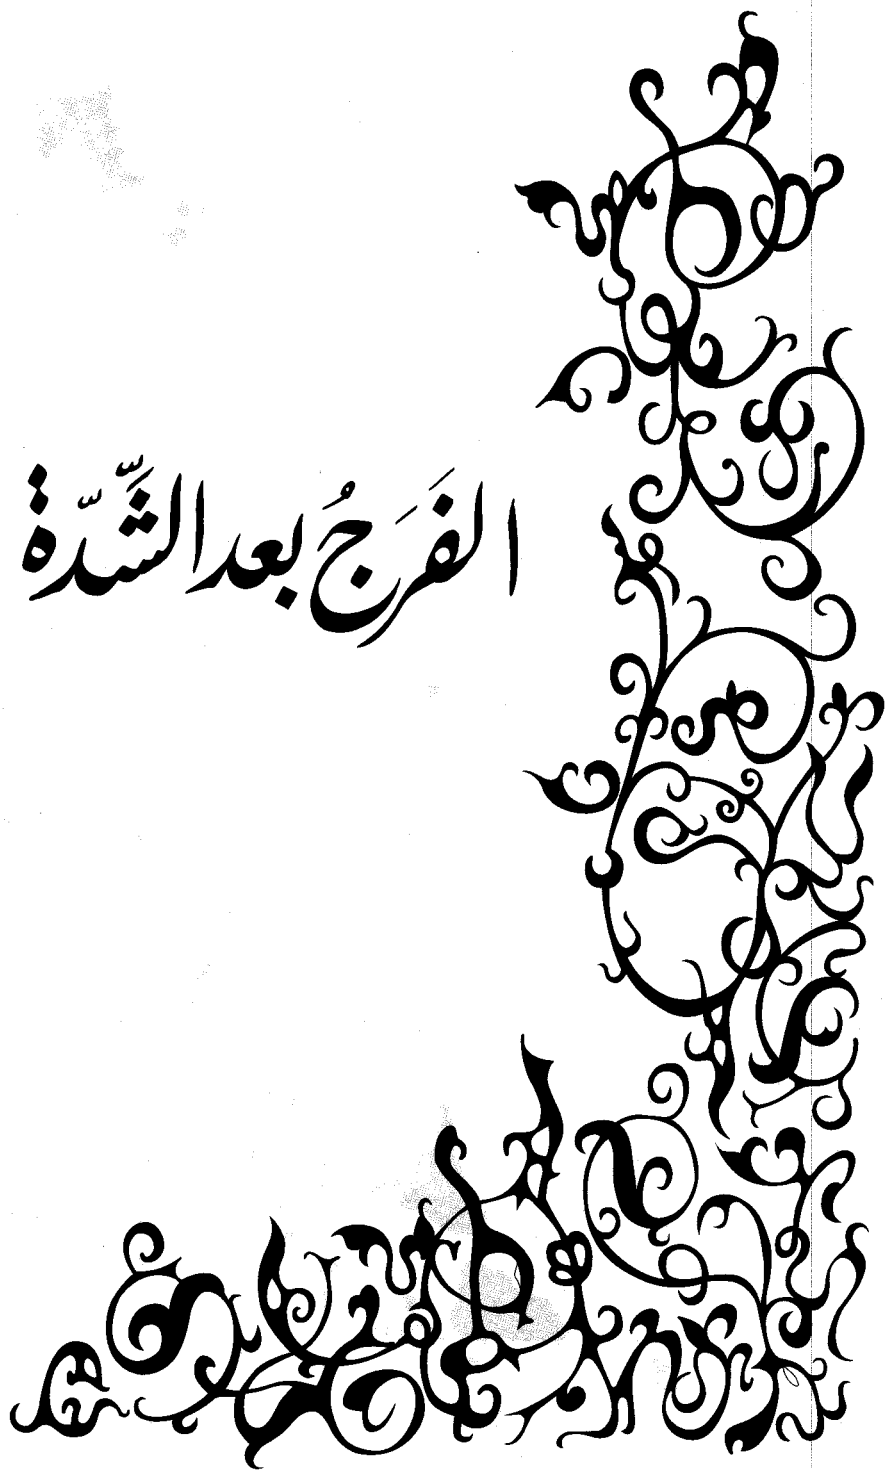 الفَرَجُ بعد الشِّدّة